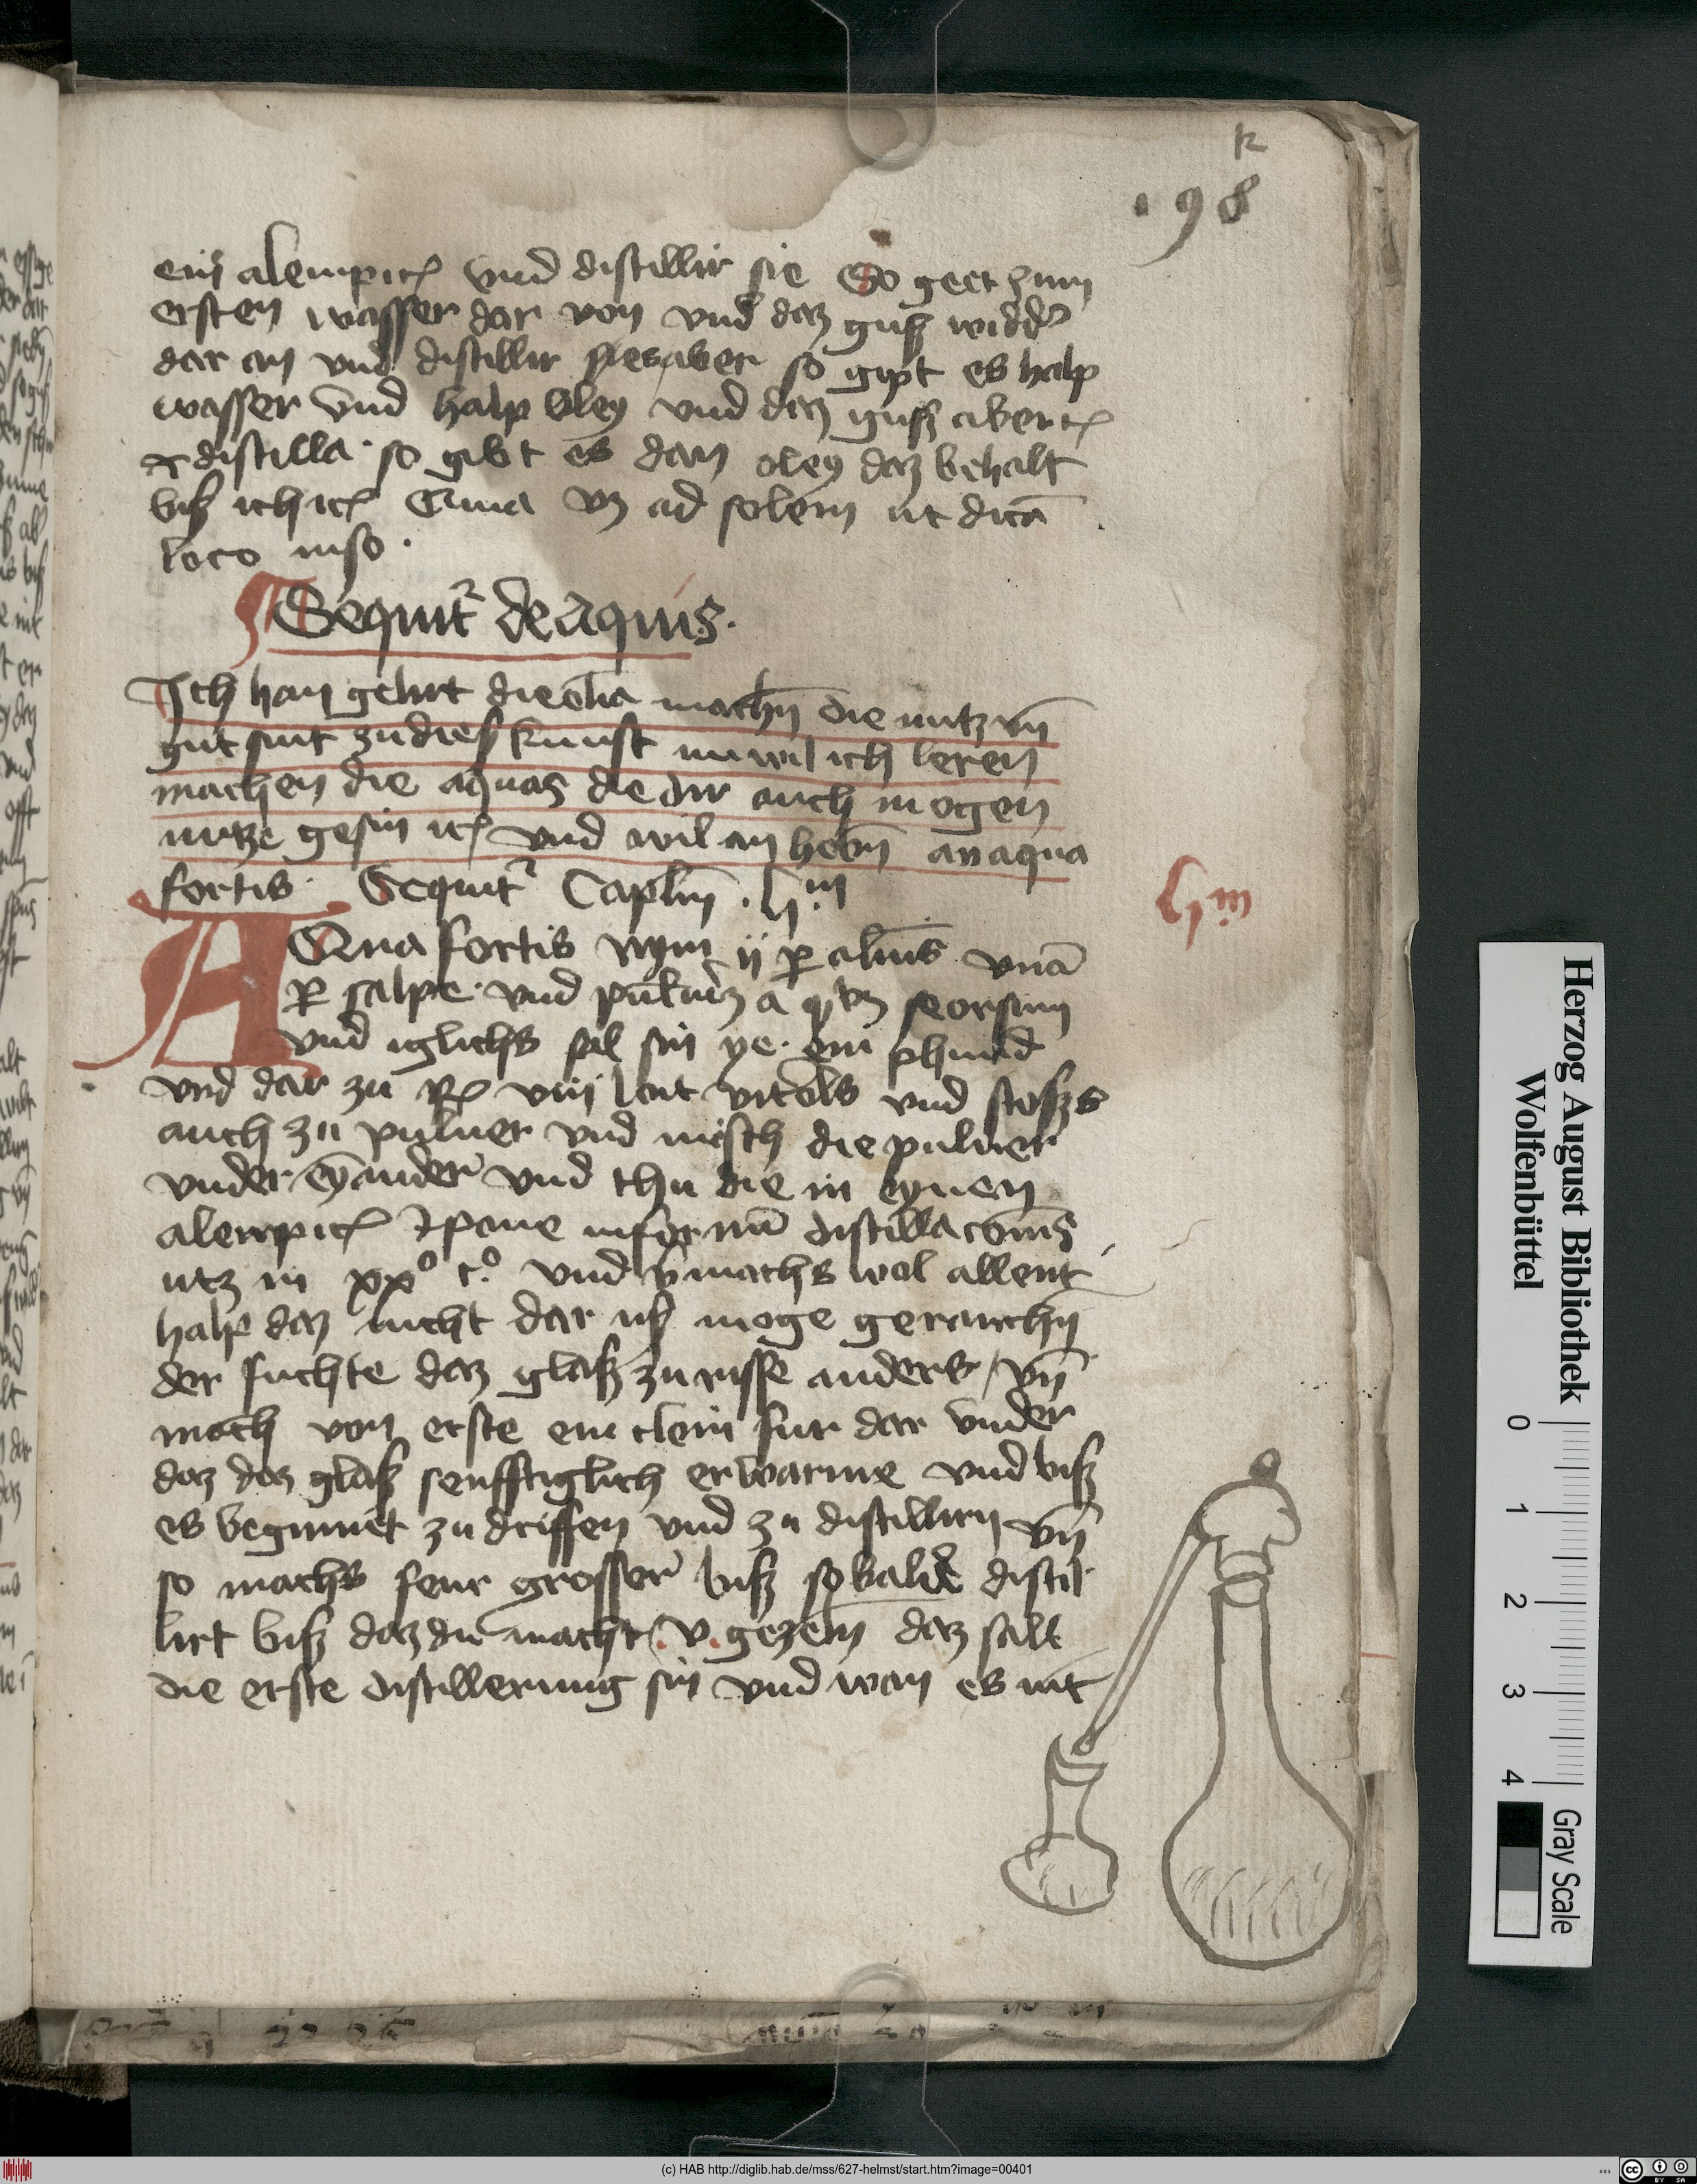 k
198
ein alempick vnd distillir sie So geet zum
ersten wasser dar von vnd daz guß widder
dar an vnd distillir aber so gipt es halp
wasser vnd halp oley vnd daz guß aber
distilla · so gibt es dan oley daz behalt
biß ich ad solem ut dicā
loco
Sequitr de Aquis.
Ich han gelirt die olia machn̄ die nutz vn̄
gut sint zu dies kunst nu wil ich leren
machen die aquas die dir auch mogen
nutze gesin vnd wil an hebn̄ an aqua
fortis · Sequitr Caplm̄ . liii
liii
AQua fortis nym ij vnā
salpe · vnd seorsim
vnd iglichs sal sin ye ein phund
vnd dar zu viij loit vitols vnd stoßs
auch zu puluer vnd misch die puluer
vnder eȳander vnd thu die in eynen
alempick pone in distillacōnis
in xx° c.° vnd vmachs wol allent
halp daz nicht dar uß moge gerauchn̄
der fuchte daz glaß zu risse anders / vn̄
mach von erste ein clein fur dar vnder
daz daz glaß senfftiglich erwarme vnd biß
es beginnet zu driffen vnd zu distillirn vn̄
so machs feur grosser biß so balde distil
lirt biß daz du macht . v . gezeln̄ daz salt
die erste distillerung sin vnd wan es nit
Herzog August Bibliothek
Wolfenbüttel
0 1 2 3 4
Gray Scale
(c) HAB http://diglib.hab.de/mss/627-helmst/start.htm?image=00401
cc BY SA